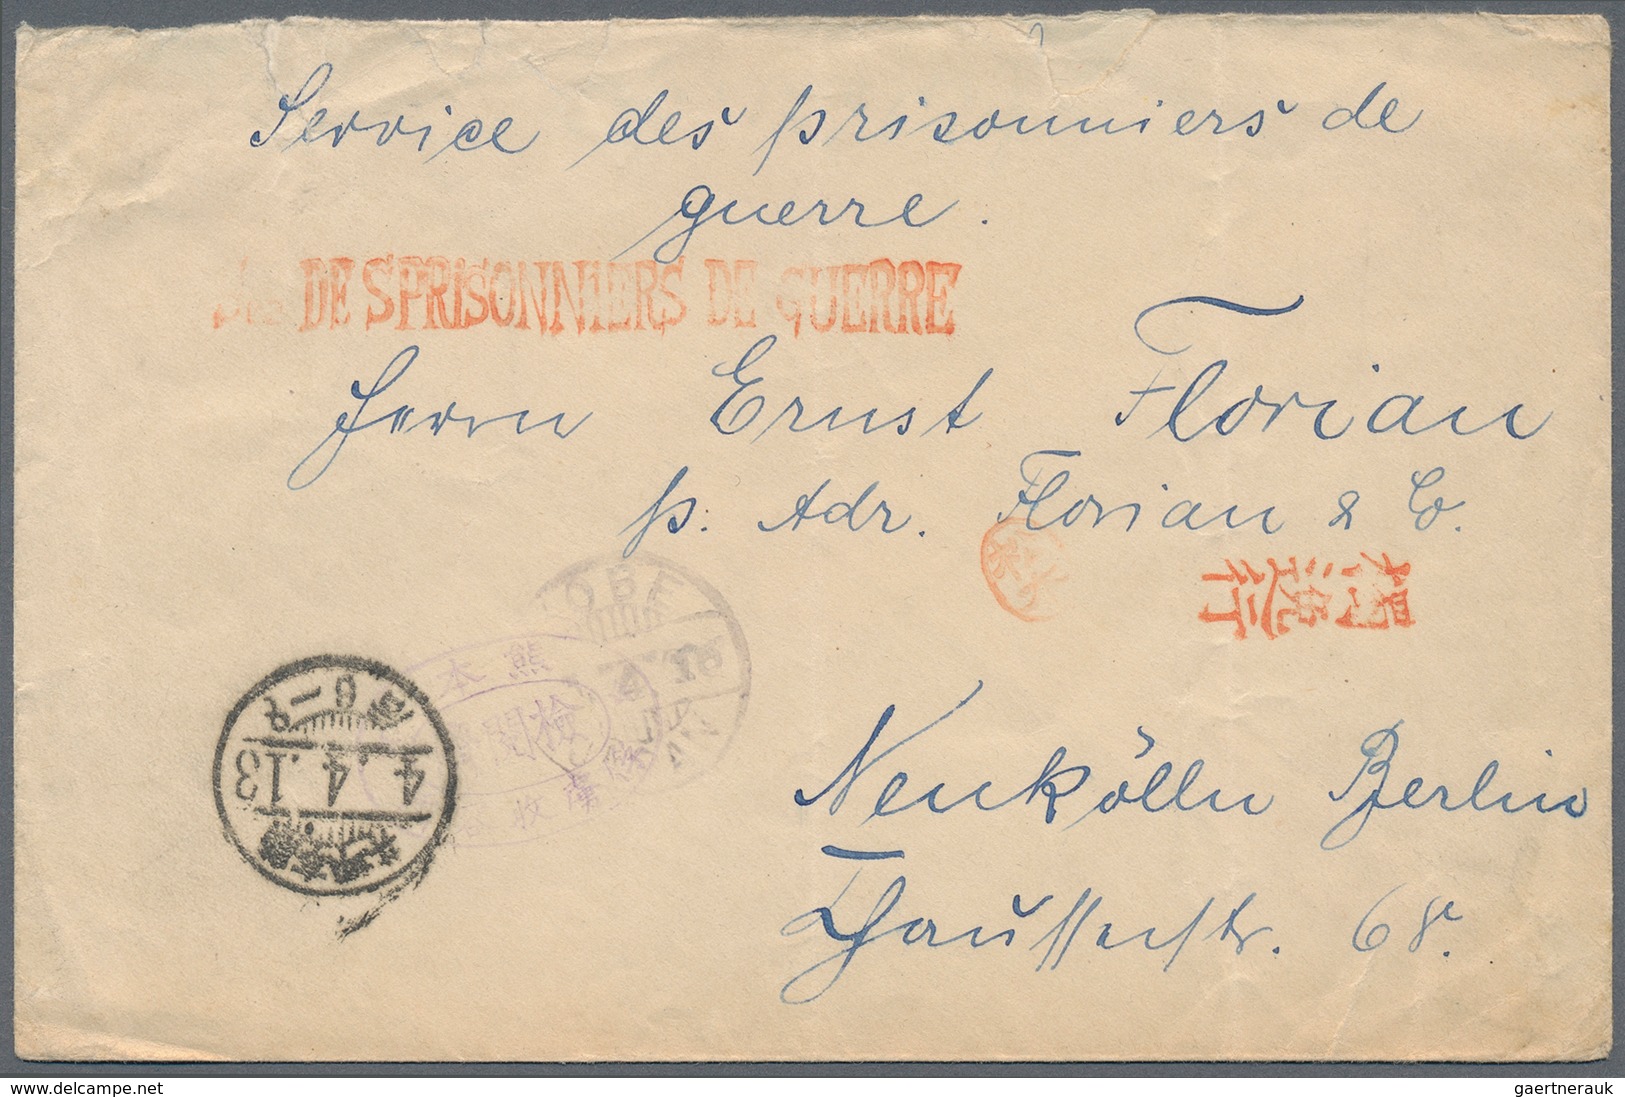 Service des prisonniers de
guerre.
DES PRISONNIERS DE GUERRE
Herrn Ernst Florian
p. Adr. Florian & Co.
檢閲
熊本
KOBE
4.4.13
Neukölln Berlin
68.
www.delcampe.net
gaertnerauk